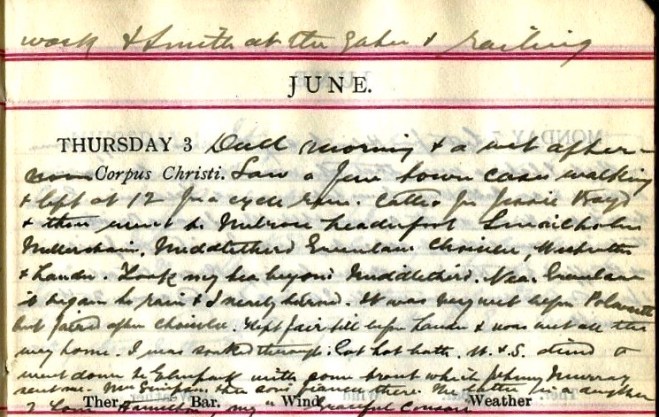 work & Smith at the gates & railing
JUNE.
THURSDAY 3 Dull morning & a wet after-
noon Corpus Christi. Saw a few town cases walking
& left at 12 for a cycle run. Called for Jessie Boyd
& then went to Melrose Leaderfoot Smailholm
Mellerstain, Middlethird Greenlaw Choicelee,
& Lauder. Took my tea beyond Middlethird. Near Greenlaw
it began to rain & I nearly turned. It was very wet before Polwarth
but faired after Choicelee. Kept fair till before Lauder & was wet all the
way home. I was soaked through. Got hot bath. W. & S. dined &
went down to Glenpark with some trout which Johnny Murray
sent me. Mrs Simpson & her son's fiancee there. The latter is a daughter
Ther. Bar. Wind Weather
Hamilton, my Graceful Cousin